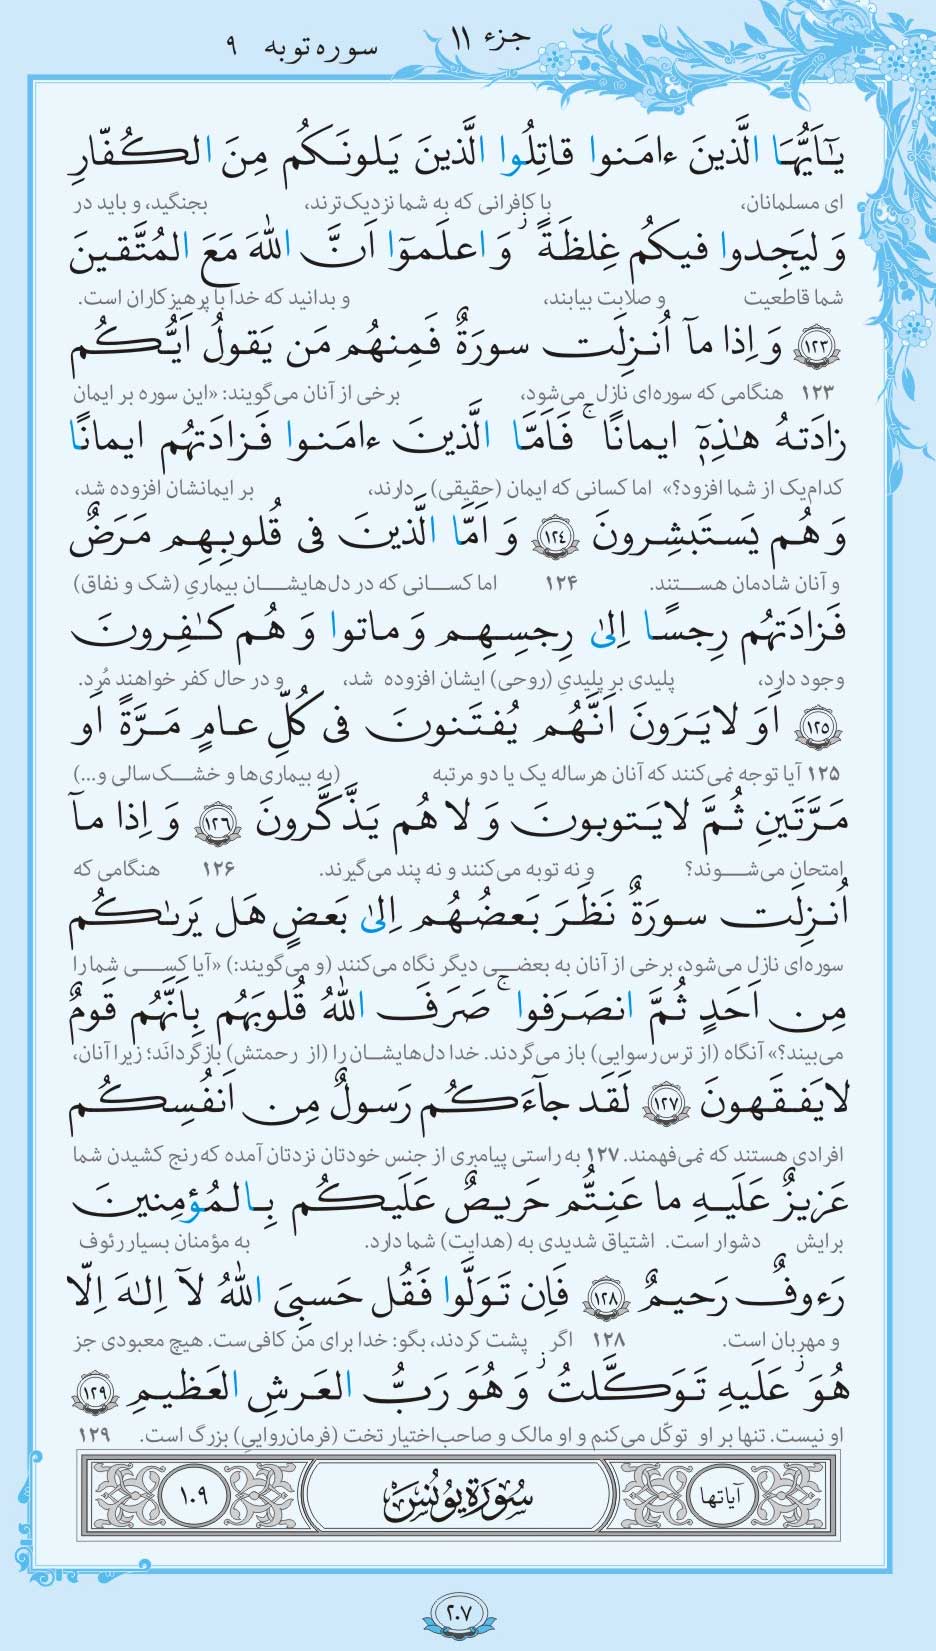 جزء ۱۱
سوره توبه ۹
يٰٓاَيُّهَا الَّذينَ ءامَنوا قاتِلُوا الَّذينَ يَلونَكُم مِنَ الكُفّارِ
ای مسلمانان، با کافرانی که به شما نزدیک‌ترند، بجنگید، و باید در
وَ ليَجِدوا فيكُم غِلظَةً ۚ وَ اعلَموٓا اَنَّ اللّٰهَ مَعَ المُتَّقينَ
شما قاطعیت و صلابت بیابند، و بدانید که خدا با پرهیزکاران است.
﴿۱۲۳﴾ وَ اِذا مآ اُنزِلَت سورَةٌ فَمِنهُم مَن يَقولُ اَيُّكُم
۱۲۳ هنگامی که سوره‌ای نازل می‌شود، برخی از آنان می‌گویند: «این سوره بر ایمان
زادَتهُ هٰذِهٖٓ ايمانًا ۚ فَاَمَّا الَّذينَ ءامَنوا فَزادَتهُم ايمانًا
کدام‌یک از شما افزود؟» اما کسانی که ایمان (حقیقی) دارند، بر ایمانشان افزوده شد،
وَ هُم يَستَبشِرونَ ﴿۱۲۴﴾ وَ اَمَّا الَّذينَ فى قُلوبِهِم مَرَضٌ
و آنان شادمان هستند. ۱۲۴ اما کسانی که در دل‌هایشان بیماریِ (شک و نفاق)
فَزادَتهُم رِجسًا اِلىٰ رِجسِهِم وَ ماتوا وَ هُم كٰفِرونَ
وجود دارد، پلیدی بر پلیدیِ (روحی) ایشان افزوده شد، و در حال کفر خواهند مُرد.
﴿۱۲۵﴾ اَوَ لايَرَونَ اَنَّهُم يُفتَنونَ فى كُلِّ عامٍ مَرَّةً اَو
۱۲۵ آیا توجه نمی‌کنند که آنان هرساله یک یا دو مرتبه (به بیماری‌ها و خشک‌سالی و...)
مَرَّتَينِ ثُمَّ لايَتوبونَ وَ لا هُم يَذَّكَّرونَ ﴿۱۲۶﴾ وَ اِذا مآ
امتحان می‌شوند؟ و نه توبه می‌کنند و نه پند می‌گیرند. ۱۲۶ هنگامی که
اُنزِلَت سورَةٌ نَظَرَ بَعضُهُم اِلىٰ بَعضٍ هَل يَرىٰكُم
سوره‌ای نازل می‌شود، برخی از آنان به بعضی دیگر نگاه می‌کنند (و می‌گویند:) «آیا کسی شما را
مِن اَحَدٍ ثُمَّ انصَرَفوا ۚ صَرَفَ اللّٰهُ قُلوبَهُم بِاَنَّهُم قَومٌ
می‌بیند؟» آنگاه (از ترس رسوایی) باز می‌گردند. خدا دل‌هایشان را (از رحمتش) بازگردانَد؛ زیرا آنان،
لايَفقَهونَ ﴿۱۲۷﴾ لَقَد جآءَكُم رَسولٌ مِن اَنفُسِكُم
افرادی هستند که نمی‌فهمند. ۱۲۷ به راستی پیامبری از جنس خودتان نزدتان آمده که رنج کشیدن شما
عَزيزٌ عَلَيهِ ما عَنِتُّم حَريصٌ عَلَيكُم بِالمُؤمِنينَ
برایش دشوار است. اشتیاق شدیدی به (هدایت) شما دارد. به مؤمنان بسیار رئوف
رَءوفٌ رَحيمٌ ﴿۱۲۸﴾ فَاِن تَوَلَّوا فَقُل حَسبِىَ اللّٰهُ لآ اِلٰهَ اِلّا
و مهربان است. ۱۲۸ اگر پشت کردند، بگو: خدا برای من کافی‌ست. هیچ معبودی جز
هُوَ ۖ عَلَيهِ تَوَكَّلتُ ۖ وَ هُوَ رَبُّ العَرشِ العَظيمِ ﴿۱۲۹﴾
او نیست. تنها بر او توکّل می‌کنم و او مالک و صاحب‌اختیار تخت (فرمان‌رواییِ) بزرگ است. ۱۲۹
آیاتها سُورَةُ يُونُس ۱۰۹
۲۰۷